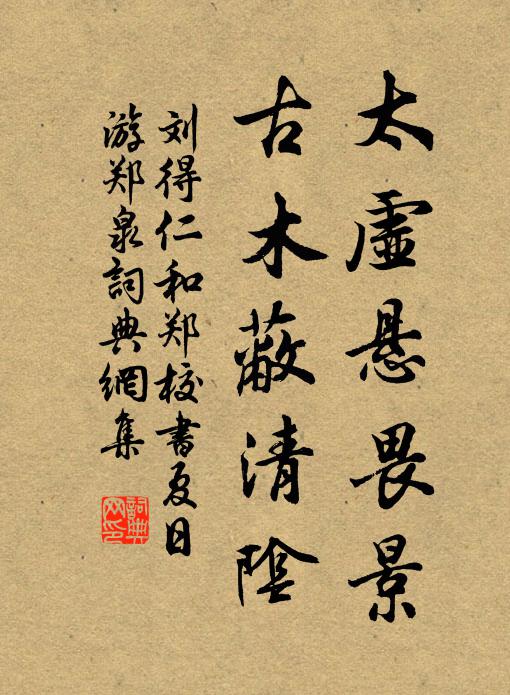 太虚悬畏景
古木蔽清陰
刘得仁和郑校書夏日
游郑泉詞典網集
詞典网印